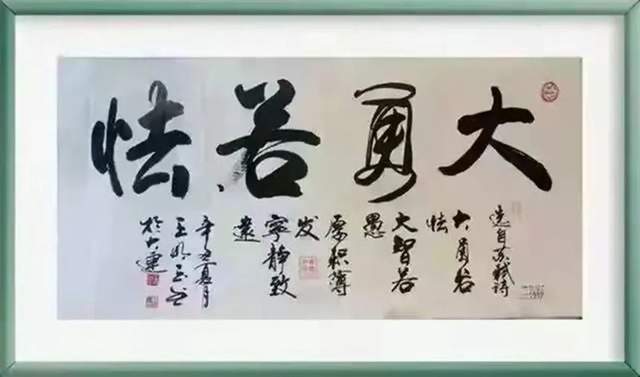 大勇若怯
选自苏轼诗
大勇若
怯
大智若
愚
厚积薄
发
宁静致
远
辛丑夏月
於大连